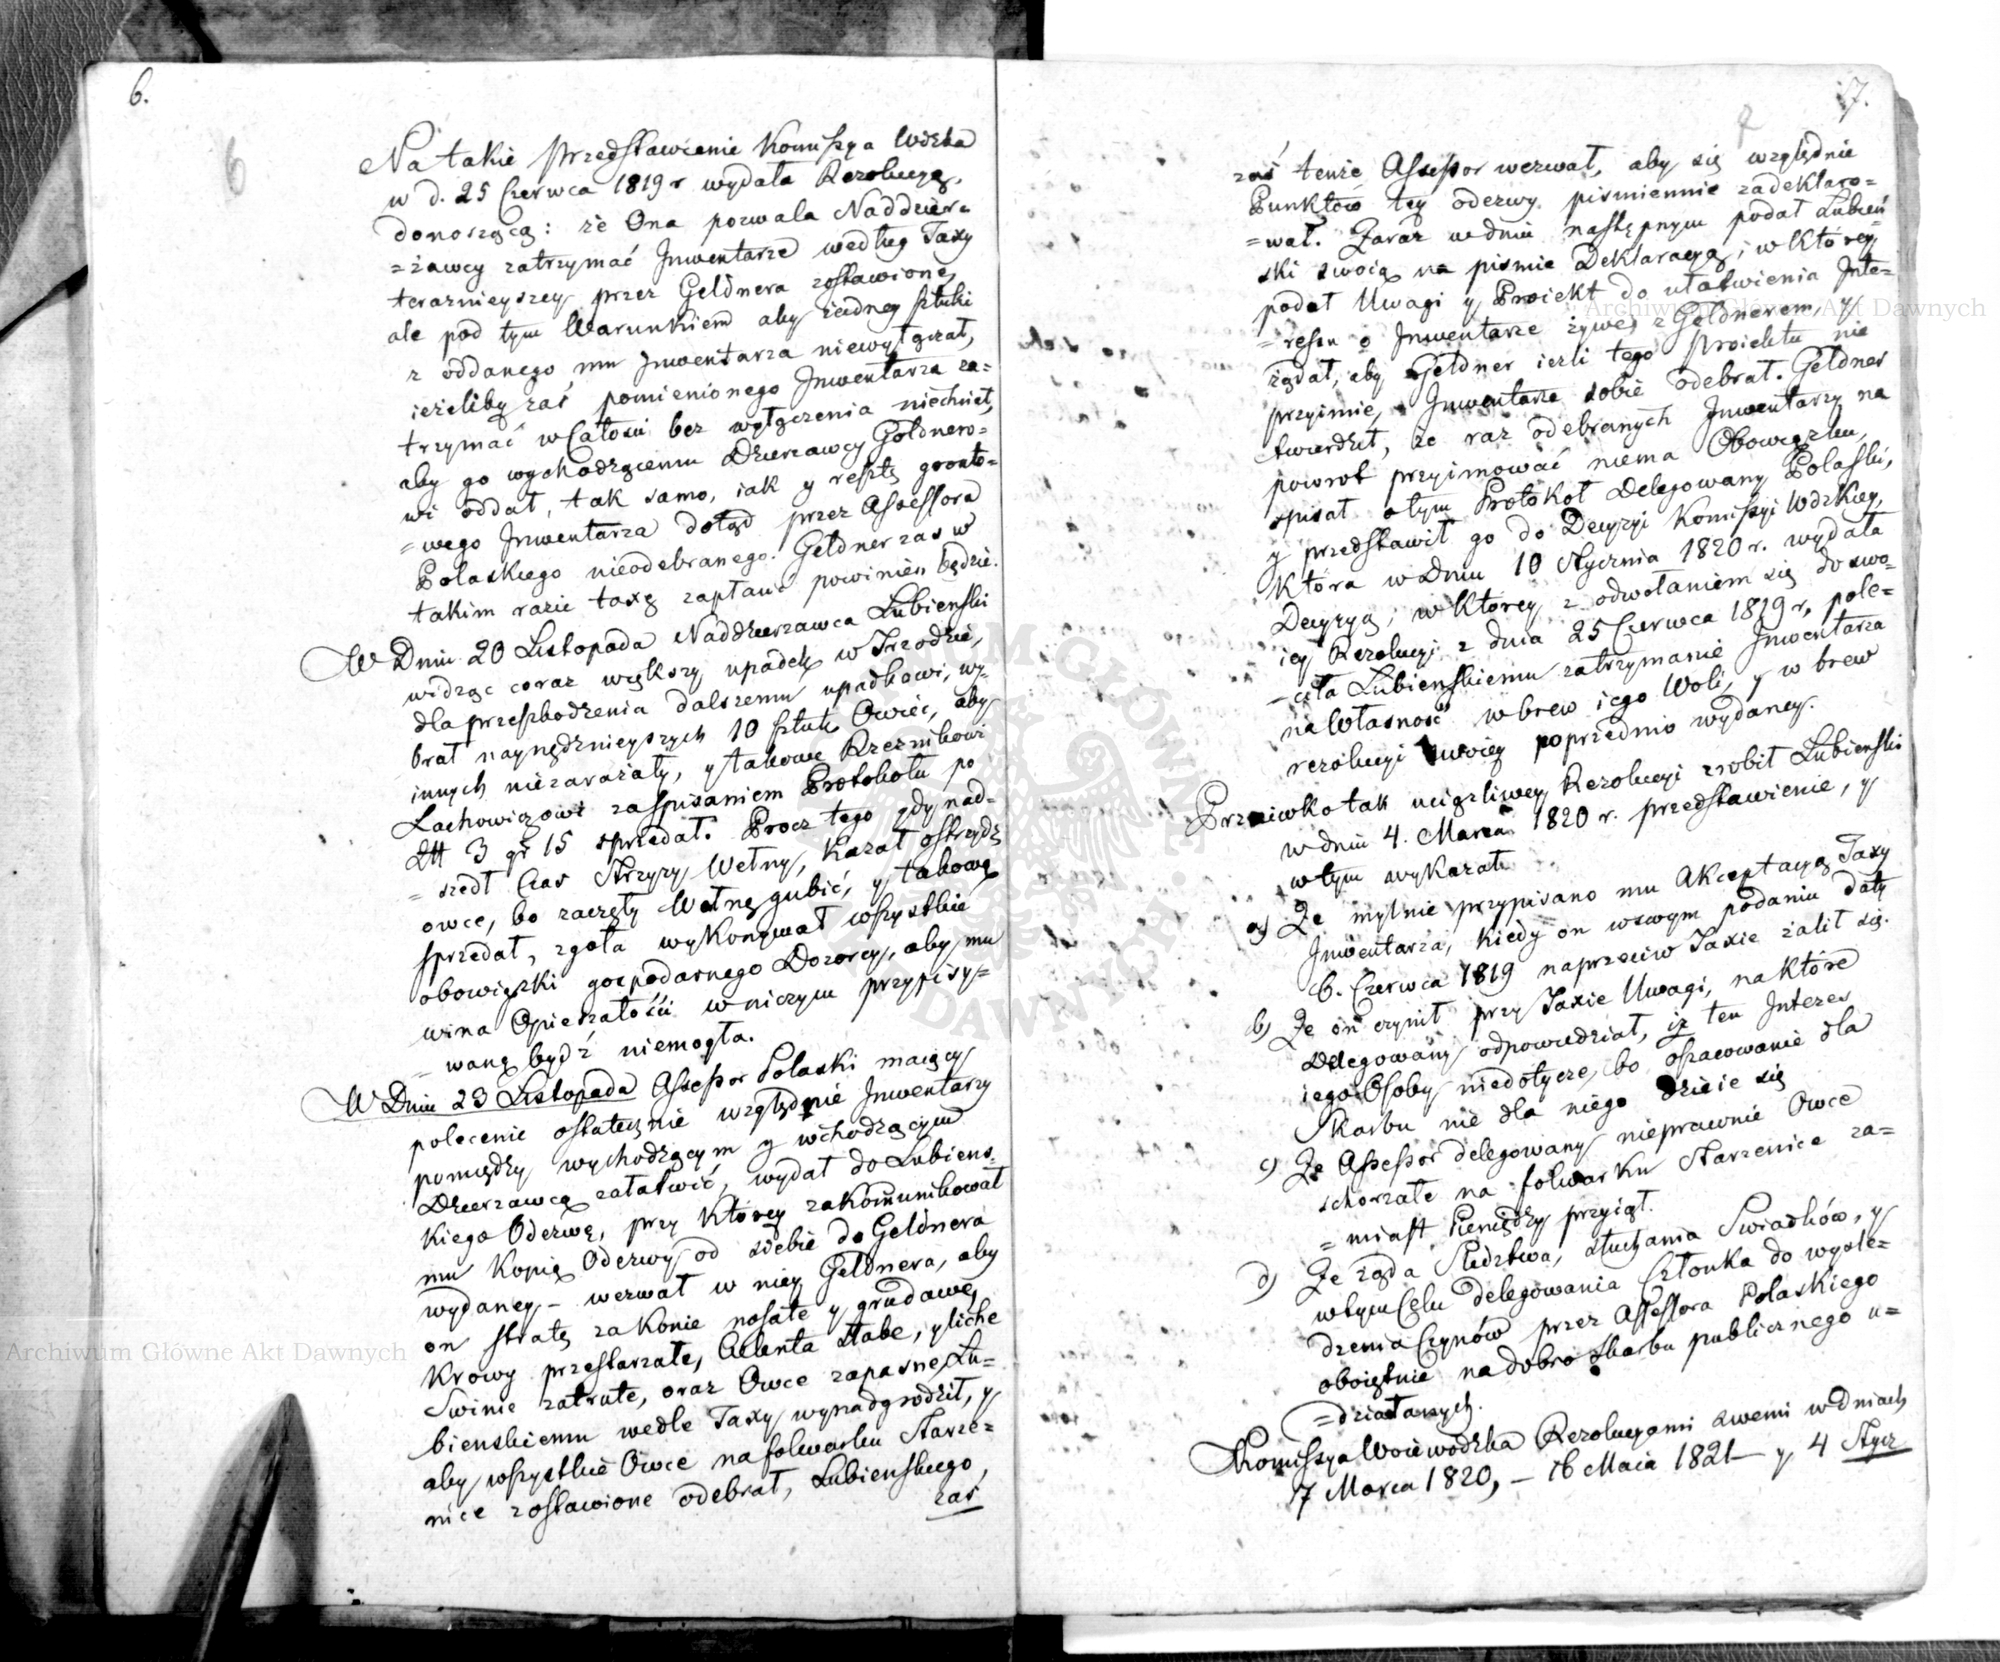 6.
6
Na takie przedstawienie Kommissya Wdzka
w d. 25 Czerwca 1819 r wydała Rezolucyą,
donoszącą: że Ona pozwala Naddzier=
=żawcy zatrzymać Inwentarze według Taxy
teraznieyszey przez Geldnera zostawione,
ale pod tym Warunkiem aby żadney sztuki
z oddanego mu Inwentarza niewyłączał,
ieżeliby zaś pomienionego Inwentarza za=
trzymać w Całości bez wyłączenia niechciał,
aby go wychodzącemu Dzierzawcy Geldnero=
wi oddał, tak samo, iak y resztę grunto=
=wego Inwentarza dotąd przez Assessora
Polaskiego nieodebranego. Geldner zas w
takim razie taxę zapłacić powinien będzie.
W Dniu 20 Listopada Naddzierzawca Lubienski
widząc coraz większy upadek w Trzodzie,
dla przeszkodzenia dalszemu upadkowi, wy-
brał naynędznieyszych 10 sztuk Owiec, aby
innych niezarażały, y takowe Rzeznikowi
Lachowiczowi za spisaniem Protokołu po
Zł 3 gr 15 sprzedał. Procz tego gdy nad=
=szedł Czas Strzyzy Wełny, kazał ostrzydz
owce, bo zaczęły Wełnę gubić, y takową
sprzedał, zgoła wykonywał wszystkie
obowiązki gospodarnego Dozorcy, aby mu
wina Opieszałości w niczym przypisy=
=waną bydź niemogła.
W Dniu 23 Listopada Assessor Polaski maiący
polecenie ostatecznie względnie Inwentarzy
pomiędzy wychodzącym y wchodzącym
Dzierzawcą załatwić, wydał do Lubiens-
kiego Oderwę, przy którey zakommunikował
mu Kopię Oderwy od siebie do Geldnera
wydaney – wezwał w niey Geldnera, aby
on stratę za konie nosate y grudawe,
Krowy przestarzałe, Cielenta słabe, y liche
Swinie zatrute, oraz Owce zapasne, Lu=
bienskiemu wedle Taxy wynadgrodził, y
aby wszystkie Owce na folwarku Starze=
nice zostawione odebrał, Lubienskiego,
zaś
7.
7
zaś tenże Assessor wezwał, aby się względnie
Punktów tey oderwy pismiennie zadeklaro=
=wał. Zaraz w dniu następnym podał Lubień
ski swoią na pismie Deklaracyą, w którey
podał Uwagi y Proiekt do ułatwienia Inte=
=ressu o Inwentarze żywe z Geldnerem, y
żądał, aby Geldner iezli tego proiektu nie
przyimie, Inwentarze sobie odebrał. Geldner
twierdził, że raz odebranych Inwentarzy na
powrot przyimować niema Obowiązku,
spisał o tym Protokoł Delegowany Polaski,
y przedstawił go do Decyzyi Komissyi Wdzkiey,
Która w Dniu 10 Stycznia 1820 r. wydała
Decyzyą, w Ktorey z odwołaniem się do swo=
iey Rezolucyi z dnia 25 Czerwca 1819 r. pole=
=ciła Lubienskiemu zatrzymanie Inwentarza
na Własność wbrew iego Woli, y w brew
rezolucyi swoiey poprzednio wydaney.
Przeciwko tak uciązliwey Rezolucyi zrobił Lubienski
w dniu 4. Marca 1820 r. przedstawienie, y
w tym wykazał
a) Ze mylnie przypisano mu Akceptacyą Taxy
Inwentarza, kiedy on w swym podaniu daty
6. Czerwca 1819 naprzeciw Taxie żalił się.
b) Ze on czynił przy Taxie Uwagi, na które
Delegowany odpowiedział, iż ten Interes
iego Osoby niedotycze, bo oszacowanie dla
Skarbu nie dla niego dzieie się
c) Ze Assessor delegowany nieprawnie Owce
schorzałe na folwarku Starzenice za=
=miast Pieniędzy przyiął.
d) Ze żąda Sledztwa, słuchania Swiadków, y
w tym Celu delegowania Członka do wysle=
dzenia Czynów przez Assessora Polaskiego
oboiętnie na dobro Skarbu publicznego u=
=działanych.
Kommissya Woiewodzka Rezolucyami swemi w dniach
7 Marca 1820, – 16 Maia 1821 – y 4 Stycz
Archiwum Główne Akt Dawnych
Archiwum Główne Akt Dawnych
ARCHIWUM GŁÓWNE AKT DAWNYCH